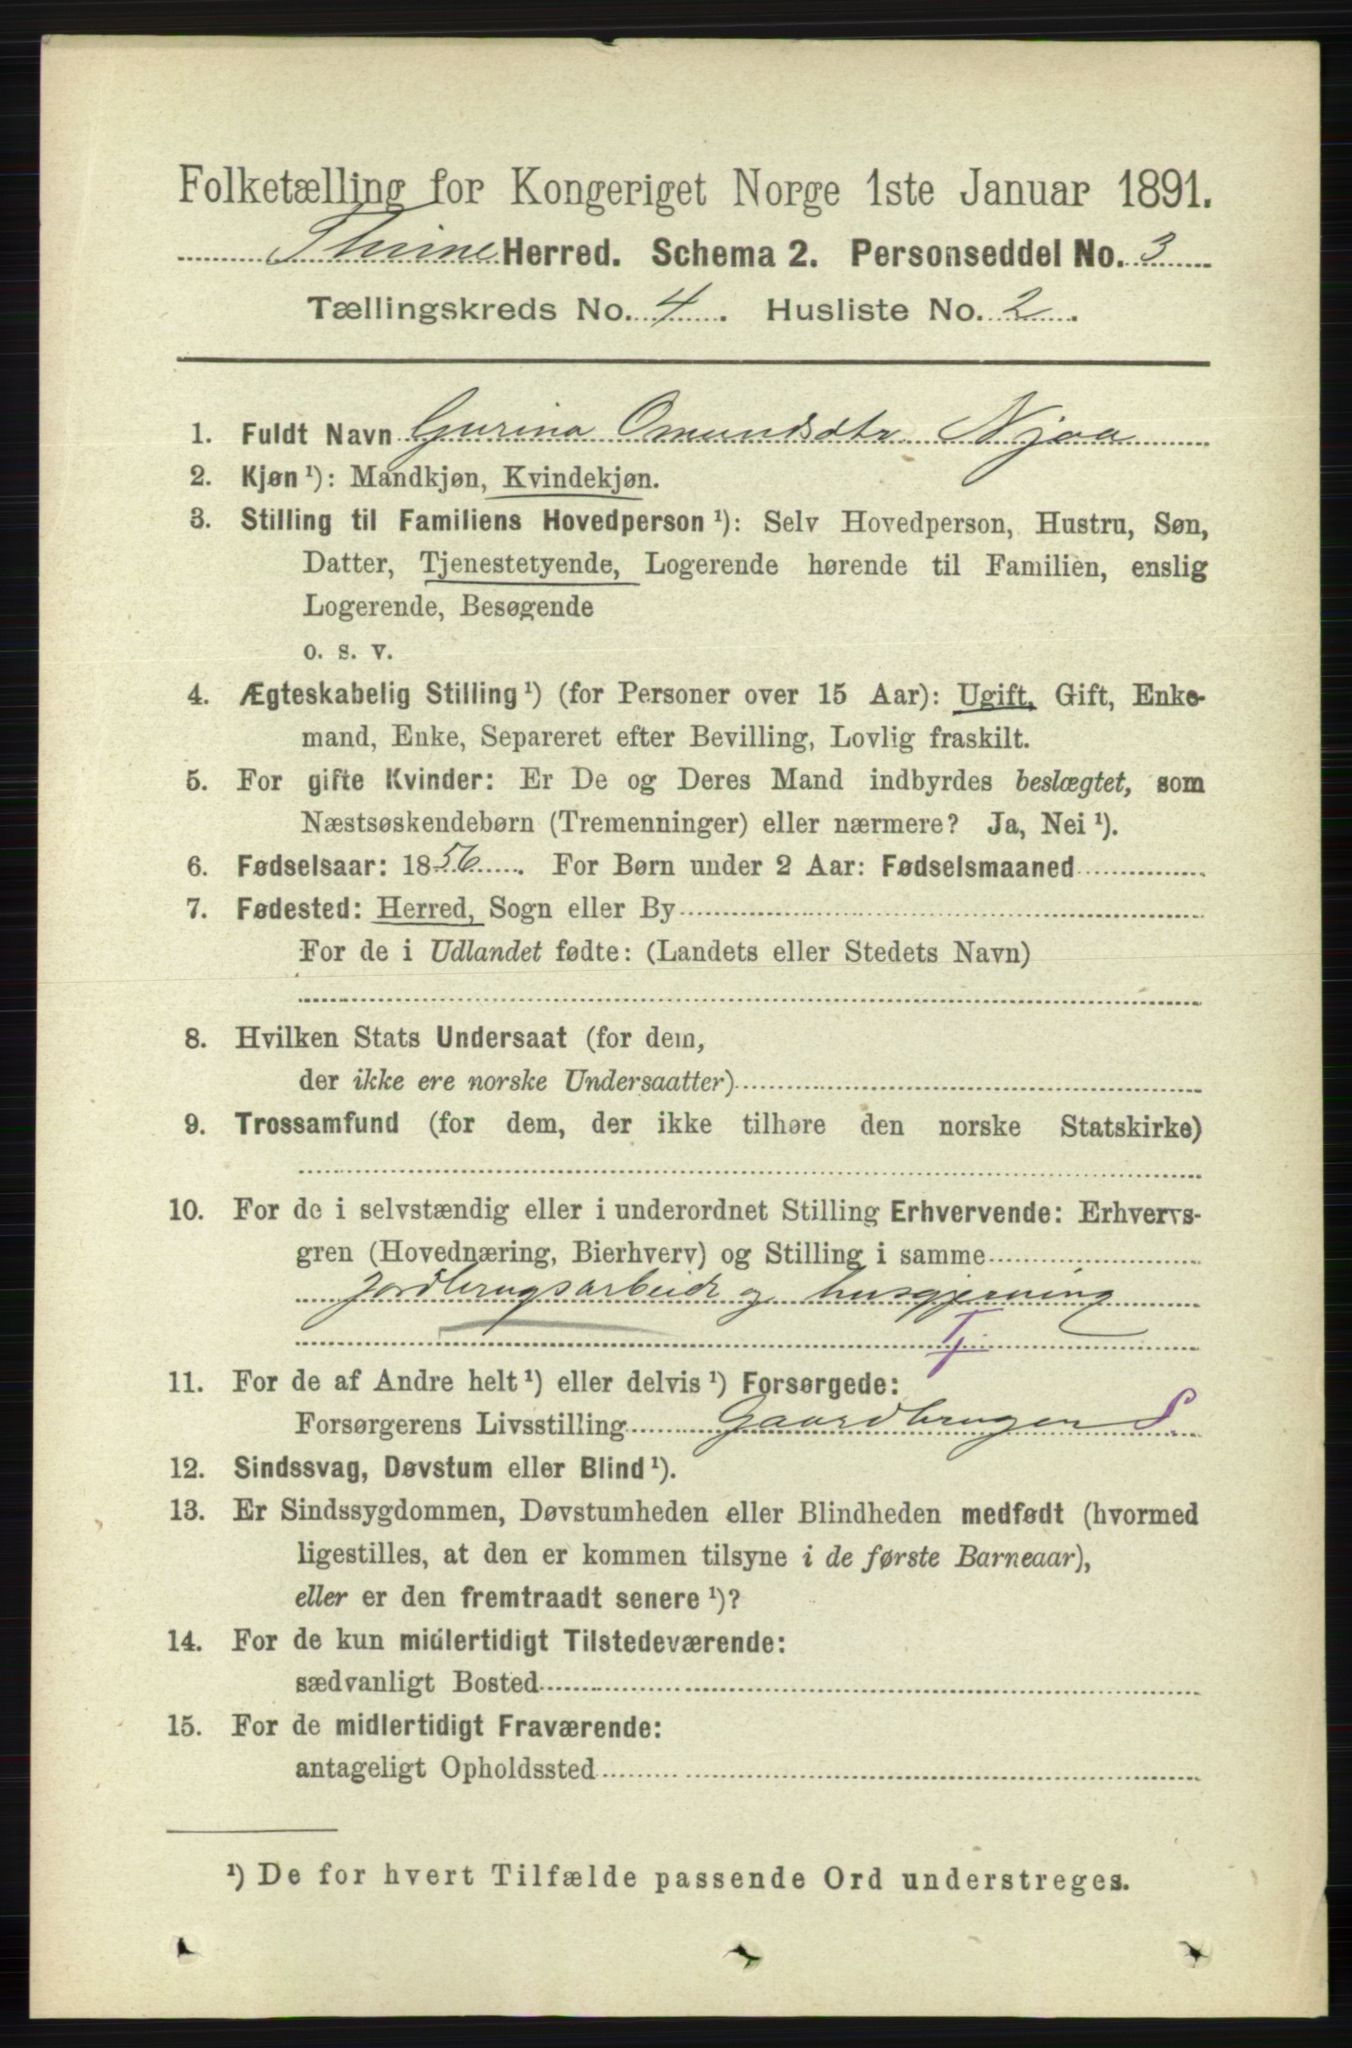 Folketælling for Kongeriget Norge 1ste Januar 1891.
Thime Herred. Schema 2. Personseddel No. 3
Tællingskreds No. 4. Husliste No. 2.
1. Fuldt Navn Gurina Omundsdtr. Njaa
2. Kjøn ¹): Mandkjøn, Kvindekjøn.
3. Stilling til Familiens Hovedperson ¹): Selv Hovedperson, Hustru, Søn,
Datter, Tjenestetyende, Logerende hørende til Familien, enslig
Logerende, Besøgende
o. s. v.
4. Ægteskabelig Stilling ¹) (for Personer over 15 Aar): Ugift, Gift, Enke-
mand, Enke, Separeret efter Bevilling, Lovlig fraskilt.
5. For gifte Kvinder: Er De og Deres Mand indbyrdes beslægtet, som
Næstsøskendebørn (Tremenninger) eller nærmere? Ja, Nei ¹).
6. Fødselsaar: 1856. For Børn under 2 Aar: Fødselsmaaned
7. Fødested: Herred, Sogn eller By
For de i Udlandet fødte: (Landets eller Stedets Navn)
8. Hvilken Stats Undersaat (for dem,
der ikke ere norske Undersaatter)
9. Trossamfund (for dem, der ikke tilhøre den norske Statskirke)
10. For de i selvstændig eller i underordnet Stilling Erhvervende: Erhvervs-
gren (Hovednæring, Bierhverv) og Stilling i samme
jordbrugsarbeide og husgjerning
Tj.
11. For de af Andre helt ¹) eller delvis ¹) Forsørgede:
Forsørgerens Livsstilling Gaardbruger S.
12. Sindssvag, Døvstum eller Blind ¹).
13. Er Sindssygdommen, Døvstumheden eller Blindheden medfødt (hvormed
ligestilles, at den er kommen tilsyne i de første Barneaar),
eller er den fremtraadt senere ¹)?
14. For de kun midlertidigt Tilstedeværende:
sædvanligt Bosted
15. For de midlertidigt Fraværende:
antageligt Opholdssted
¹) De for hvert Tilfælde passende Ord understreges.